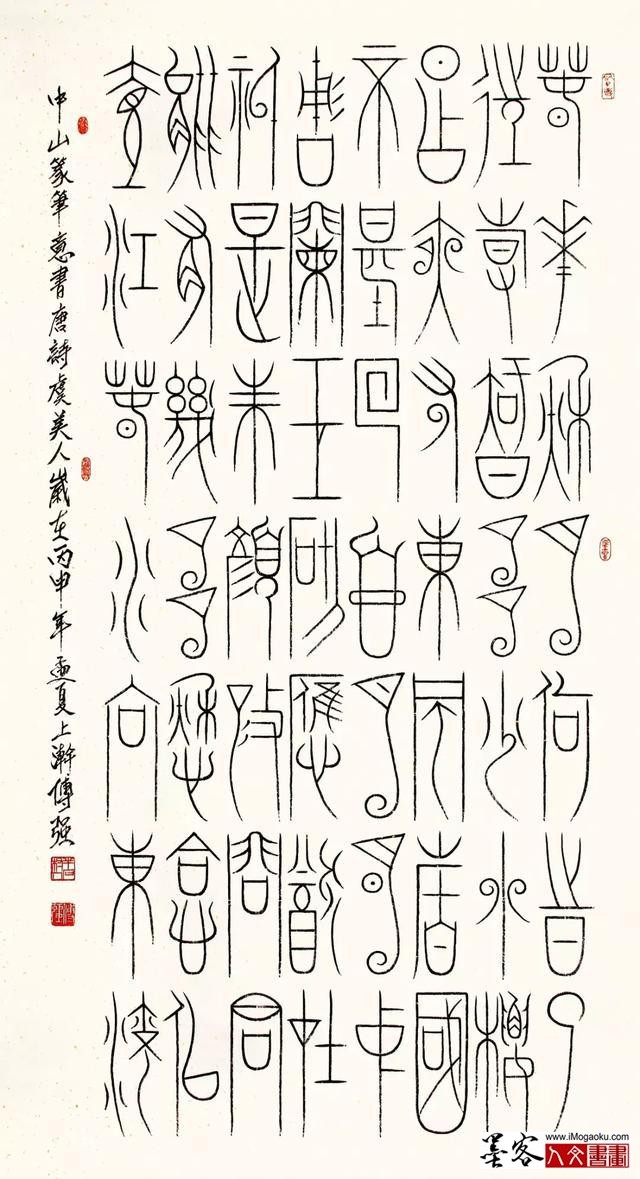 春花秋月何時了
往事知多少小樓
昨夜又東風故國
不堪回首月明中
雕闌玉砌應猶在
祇是朱顏改問君
能有幾多愁恰似
壹江春水向東流
中山篆筆意書唐詩虞美人歲在丙申年孟夏上瀚傅强
墨客
www.iMogaoku.com
人文書畫